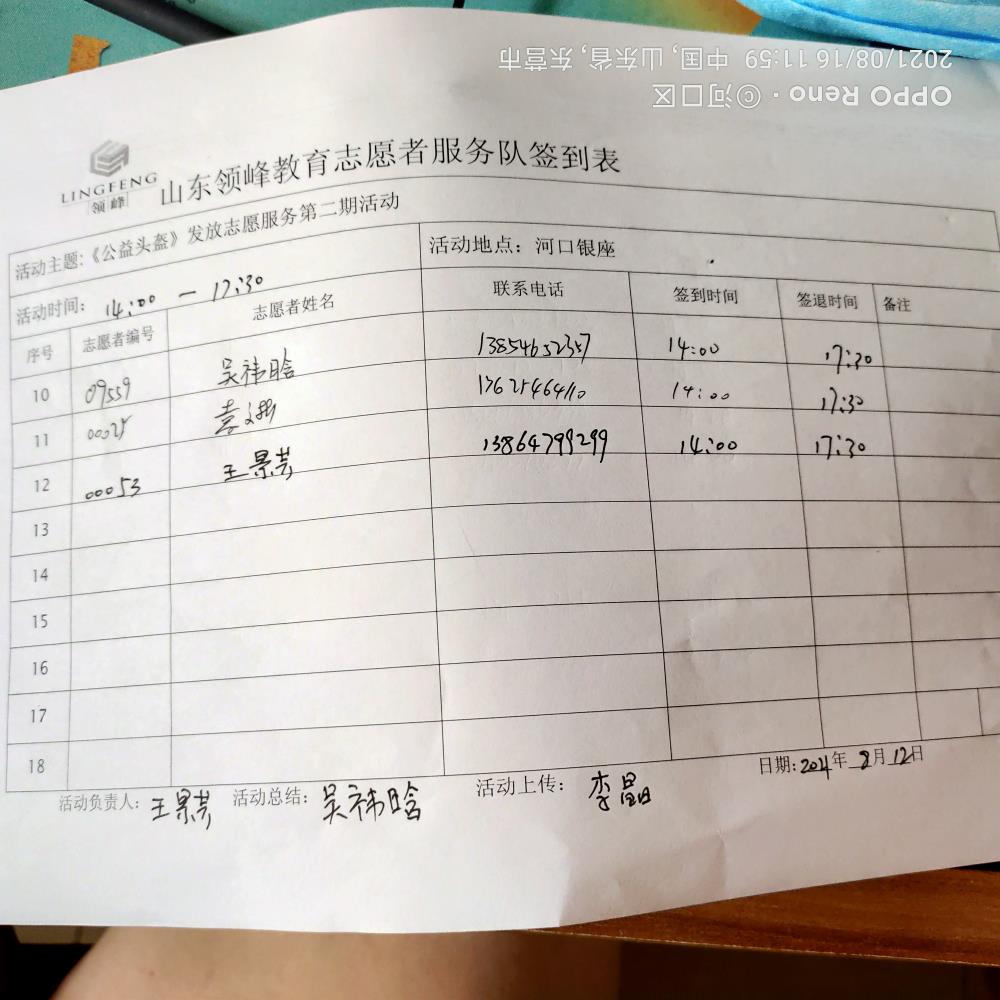 2021/08/16 11:59 中国, 山东省, 东营市
OPPO Reno · ©河口区
LINGFENG
领峰
山东领峰教育志愿者服务队签到表
活动主题:《公益头盔》发放志愿服务第二期活动
活动时间: 14:00 — 17:30 活动地点: 河口银座
序号 志愿者编号 志愿者姓名 联系电话 签到时间 签退时间 备注
10 09559 吴祎晗 13854652357 14:00 17:30
11 00025 袁 14:00 17:30
12 00053 王景芸 13864799299 14:00 17:30
13
14
15
16
17
18
活动负责人: 王景芸 活动总结: 吴祎晗 活动上传: 李晶 日期: 2021年 8月 12日